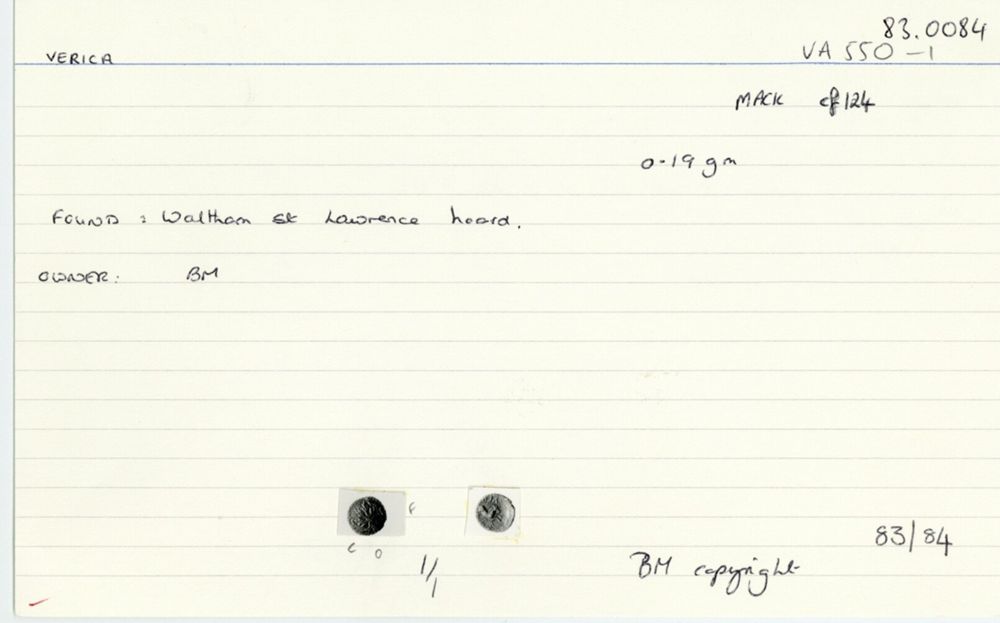 83.0084
VERICA
VA 550-1
MACK cf 124
0.19 gm
FOUND : Waltham St Lawrence hoard.
OWNER: BM
C O F
1/1
83/84
BM copyright